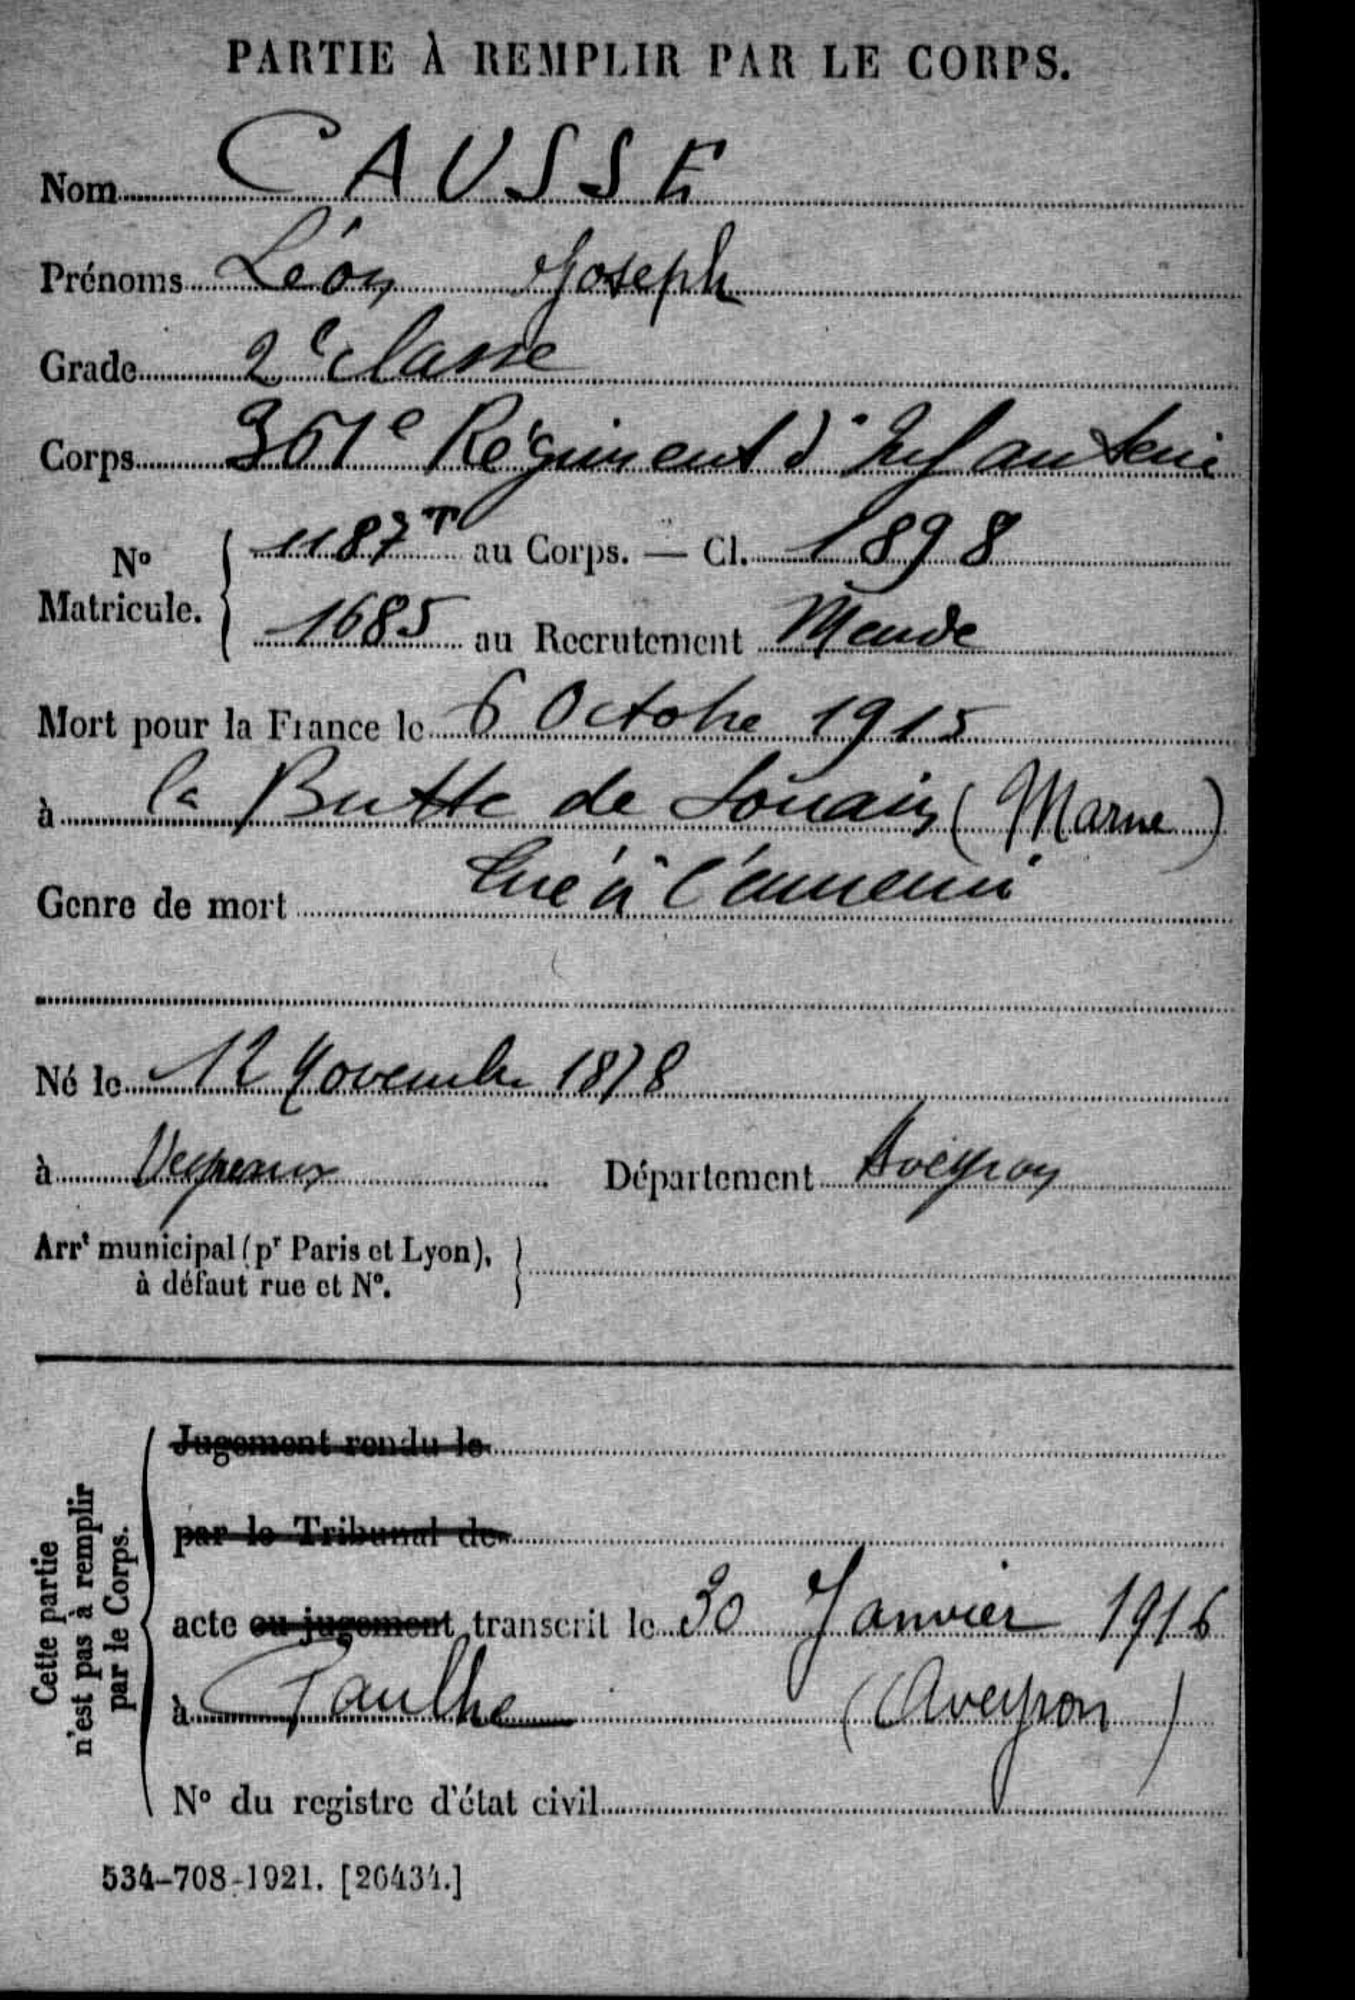 PARTIE À REMPLIR PAR LE CORPS.
Nom CAUSSE
Prénoms Léon Joseph
Grade 2e classe
Corps 361e Régiment d'Infanterie
No Matricule. { 1187 T au Corps. — Cl. 1898
1685 au Recrutement Mende
Mort pour la France le 6 Octobre 1915
à la Butte de Souain (Marne)
Genre de mort tué à l'ennemi
Né le 12 Novembre 1878
à Veyreau Département Aveyron
Arrt municipal (pr Paris et Lyon), à défaut rue et No. }
Cette partie n'est pas à remplir par le Corps.
Jugement rendu le
par le Tribunal de
acte ou jugement transcrit le 30 Janvier 1916
à Paulhe (Aveyron)
No du registre d'état civil
534-708-1921. [26434.]